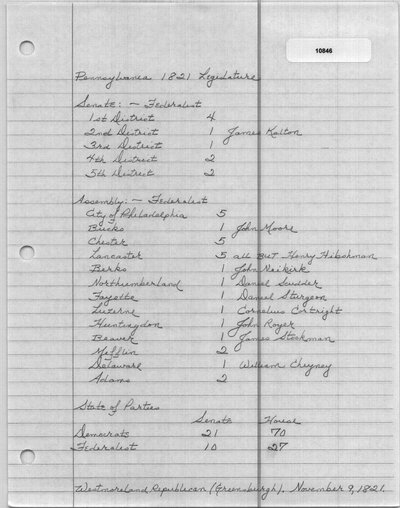 10846
Pennsylvania 1821 Legislature
Senate: - Federalist
1st District 4
2nd District 1 James Kalton
3rd District 1
4th District 2
5th District 2
Assembly: - Federalist
City of Philadelphia 5
Bucks 1 John Moore
Chester 5
Lancaster 5 all BUT Henry Hibshman
Berks 1 John Neikirk
Northumberland 1 Daniel Scudder
Fayette 1 Daniel Sturgeon
Luzerne 1 Cornelius Cortright
Huntingdon 1 John Royer
Beaver 1 James Stockman
Mifflin 2
Delaware 1 William Cheyney
Adams 2
State of Parties
Senate House
Democrats 21 70
Federalist 10 27
Westmoreland Republican (Greensburgh). November 9, 1821.